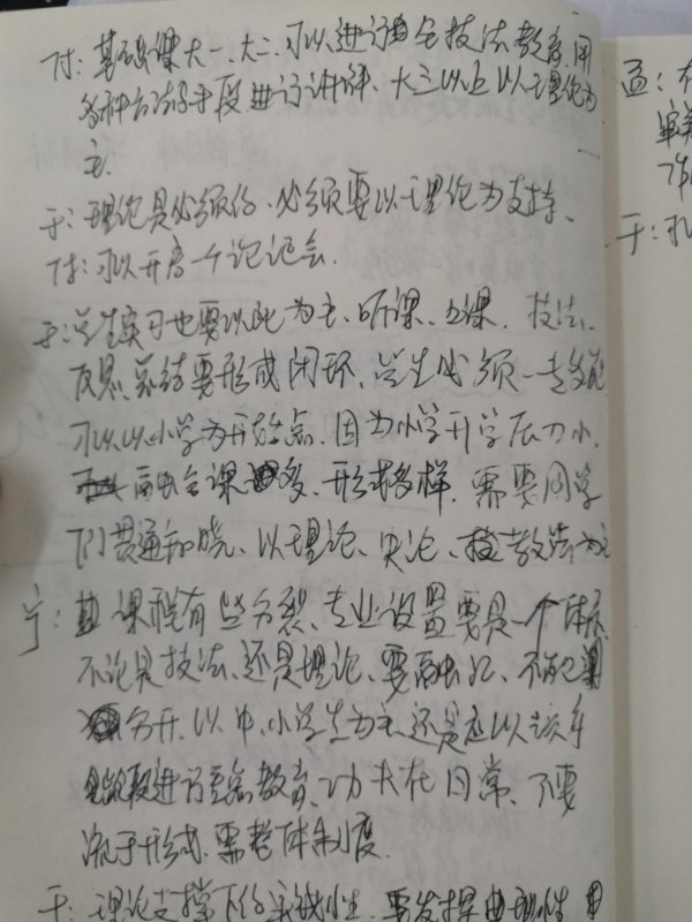 付：基础课大一、大二、可以进行全技法教育，用
各种方法手段进行讲解、大三以上以理论为
主.
于：理论是必须的、必须要以理论为支撑、
付：可以开启一个论证会.
于：学生实习也要以此为主、听课、上课、技法、
反思、总结要形成闭环、学生必须一专多能
可以以小学为开始点、因为小学升学压力小、
融合课多、形式多样、需要同学
们贯通知晓、以理论、史论、教法为主
宁：课程有些分裂、专业设置要是一个体系
不论是技法、还是理论、要融汇、不能
分开、以中、小学生为主还是应以该年
龄段进行教育、功夫在日常、不要
流于形式、需整体制度.
于：理论支撑下的实践性、要发挥
于：